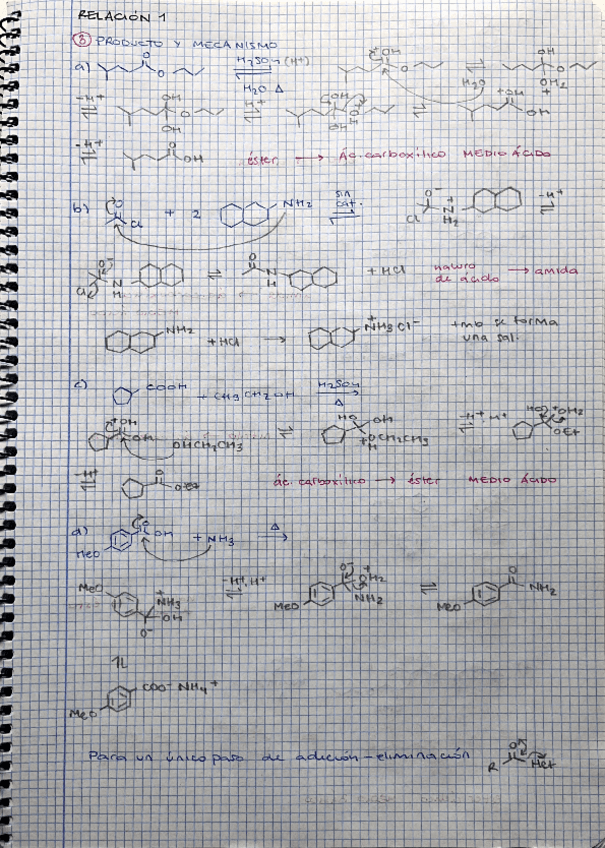 RELACIÓN 1
③ PRODUCTO Y MECANISMO
a) O O H2SO4 (H+) H2O Δ +OH O OH O OH2 +
-H+ OH O OH H+ OH O OH H + +OH OH H2O
-H+ O OH éster → Ác. carboxílico MEDIO ÁCIDO
b) O Cl + 2 NH2 sin cat. O- Cl N+ H2 -H+
O- Cl N H O N H + HCl haluro de ácido → amida
NH2 + HCl → NH3 Cl- + tmb se forma una sal.
c) COOH + CH3CH2OH H2SO4 Δ
+OH OH OHCH2CH3 HO OH OCH2CH3 + H -H+, H+ HO +OH2 OEt
-H+ O OEt ác. carboxílico → éster MEDIO ÁCIDO
d) O OH MeO + NH3 Δ
MeO + NH3 OH O- -H+, H+ O- + OH2 NH2 MeO O NH2 MeO
COO- NH4+
MeO
Para un único paso de adición-eliminación O R Het